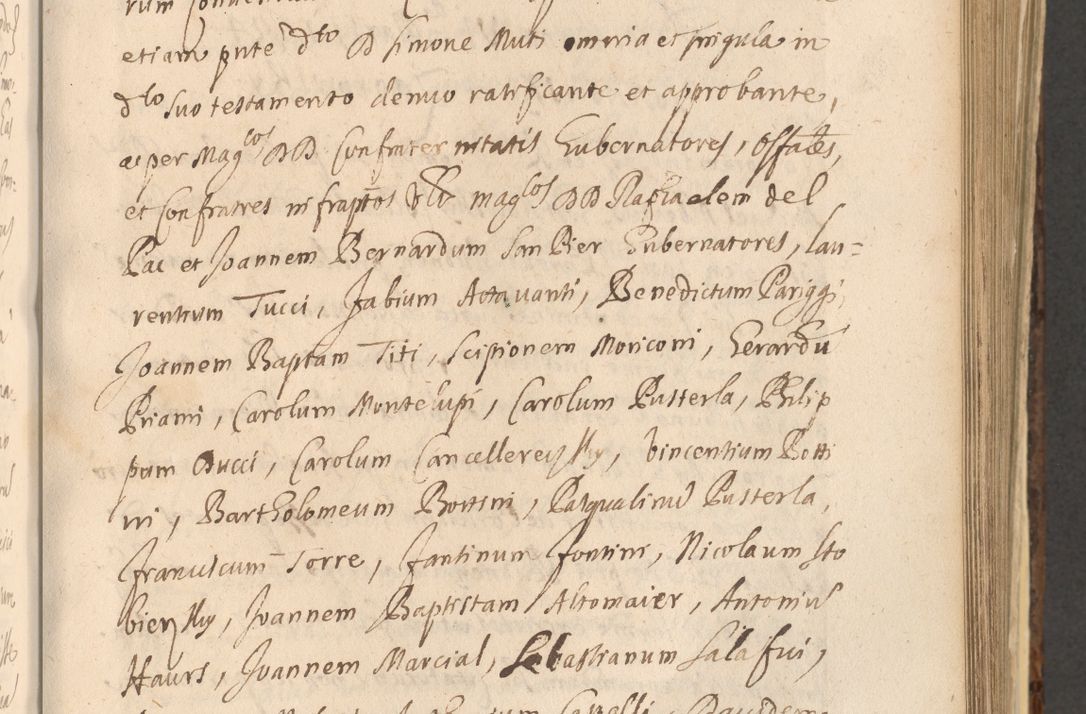 etiam pnte d^to D Simone Muti omnia et singula in
d^to suo testamento denuo ratificante et approbante,
ac per Mag^cos DD Confraternitatis Gubernatores, offāles,
et Confratres infraptos Vtt mag^cos DD Raphaelem del
Pac et Joannem Bernardum San Pier Gubernatores, Lau=
rentium Tucci, Fabium Attavanti, Benedictum Pariggi,
Joannem Baptam Titi, Scipionem Moriconi, Gerardū
Priami, Carolum Montelupi, Carolum Pusterla, Philip
pum Ducci, Carolum Cancellereyßky, Vincentium Botti
ni, Bartholomeum Bottini, Pasqualinū Pusterla,
Franciscum Torre, Fantinum Fontini, Nicolaum Sto
bierzßky, Joannem Baptistam Altomaier, Antoniū
Haurs, Joannem Marcial, Sebastianum Salafui,